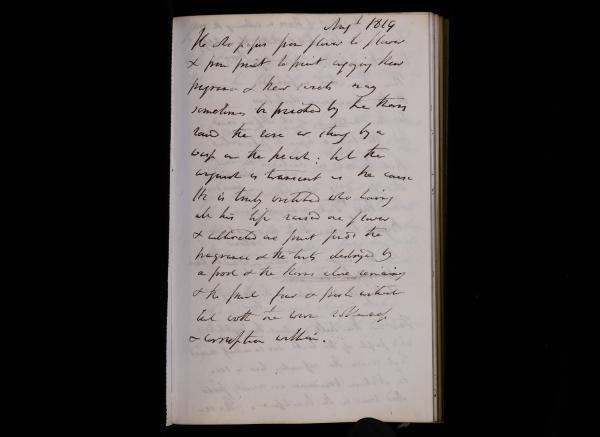 Augt 1819
He who passes from flower to flower
& from fruit to fruit enjoying their
fragrance & their sweets may
sometimes be pricked by the thorns
round the rose or stung by a
wasp on the peach; but the
anguish is transient as the cause
He is truly wretched who having
all his life raised one flower
& cultivated one fruit finds the
fragrance & the tints destroyed by
a frost & the thorns alone remaining
& the fruit fair & fresh without
but with the worm
& corruption within.